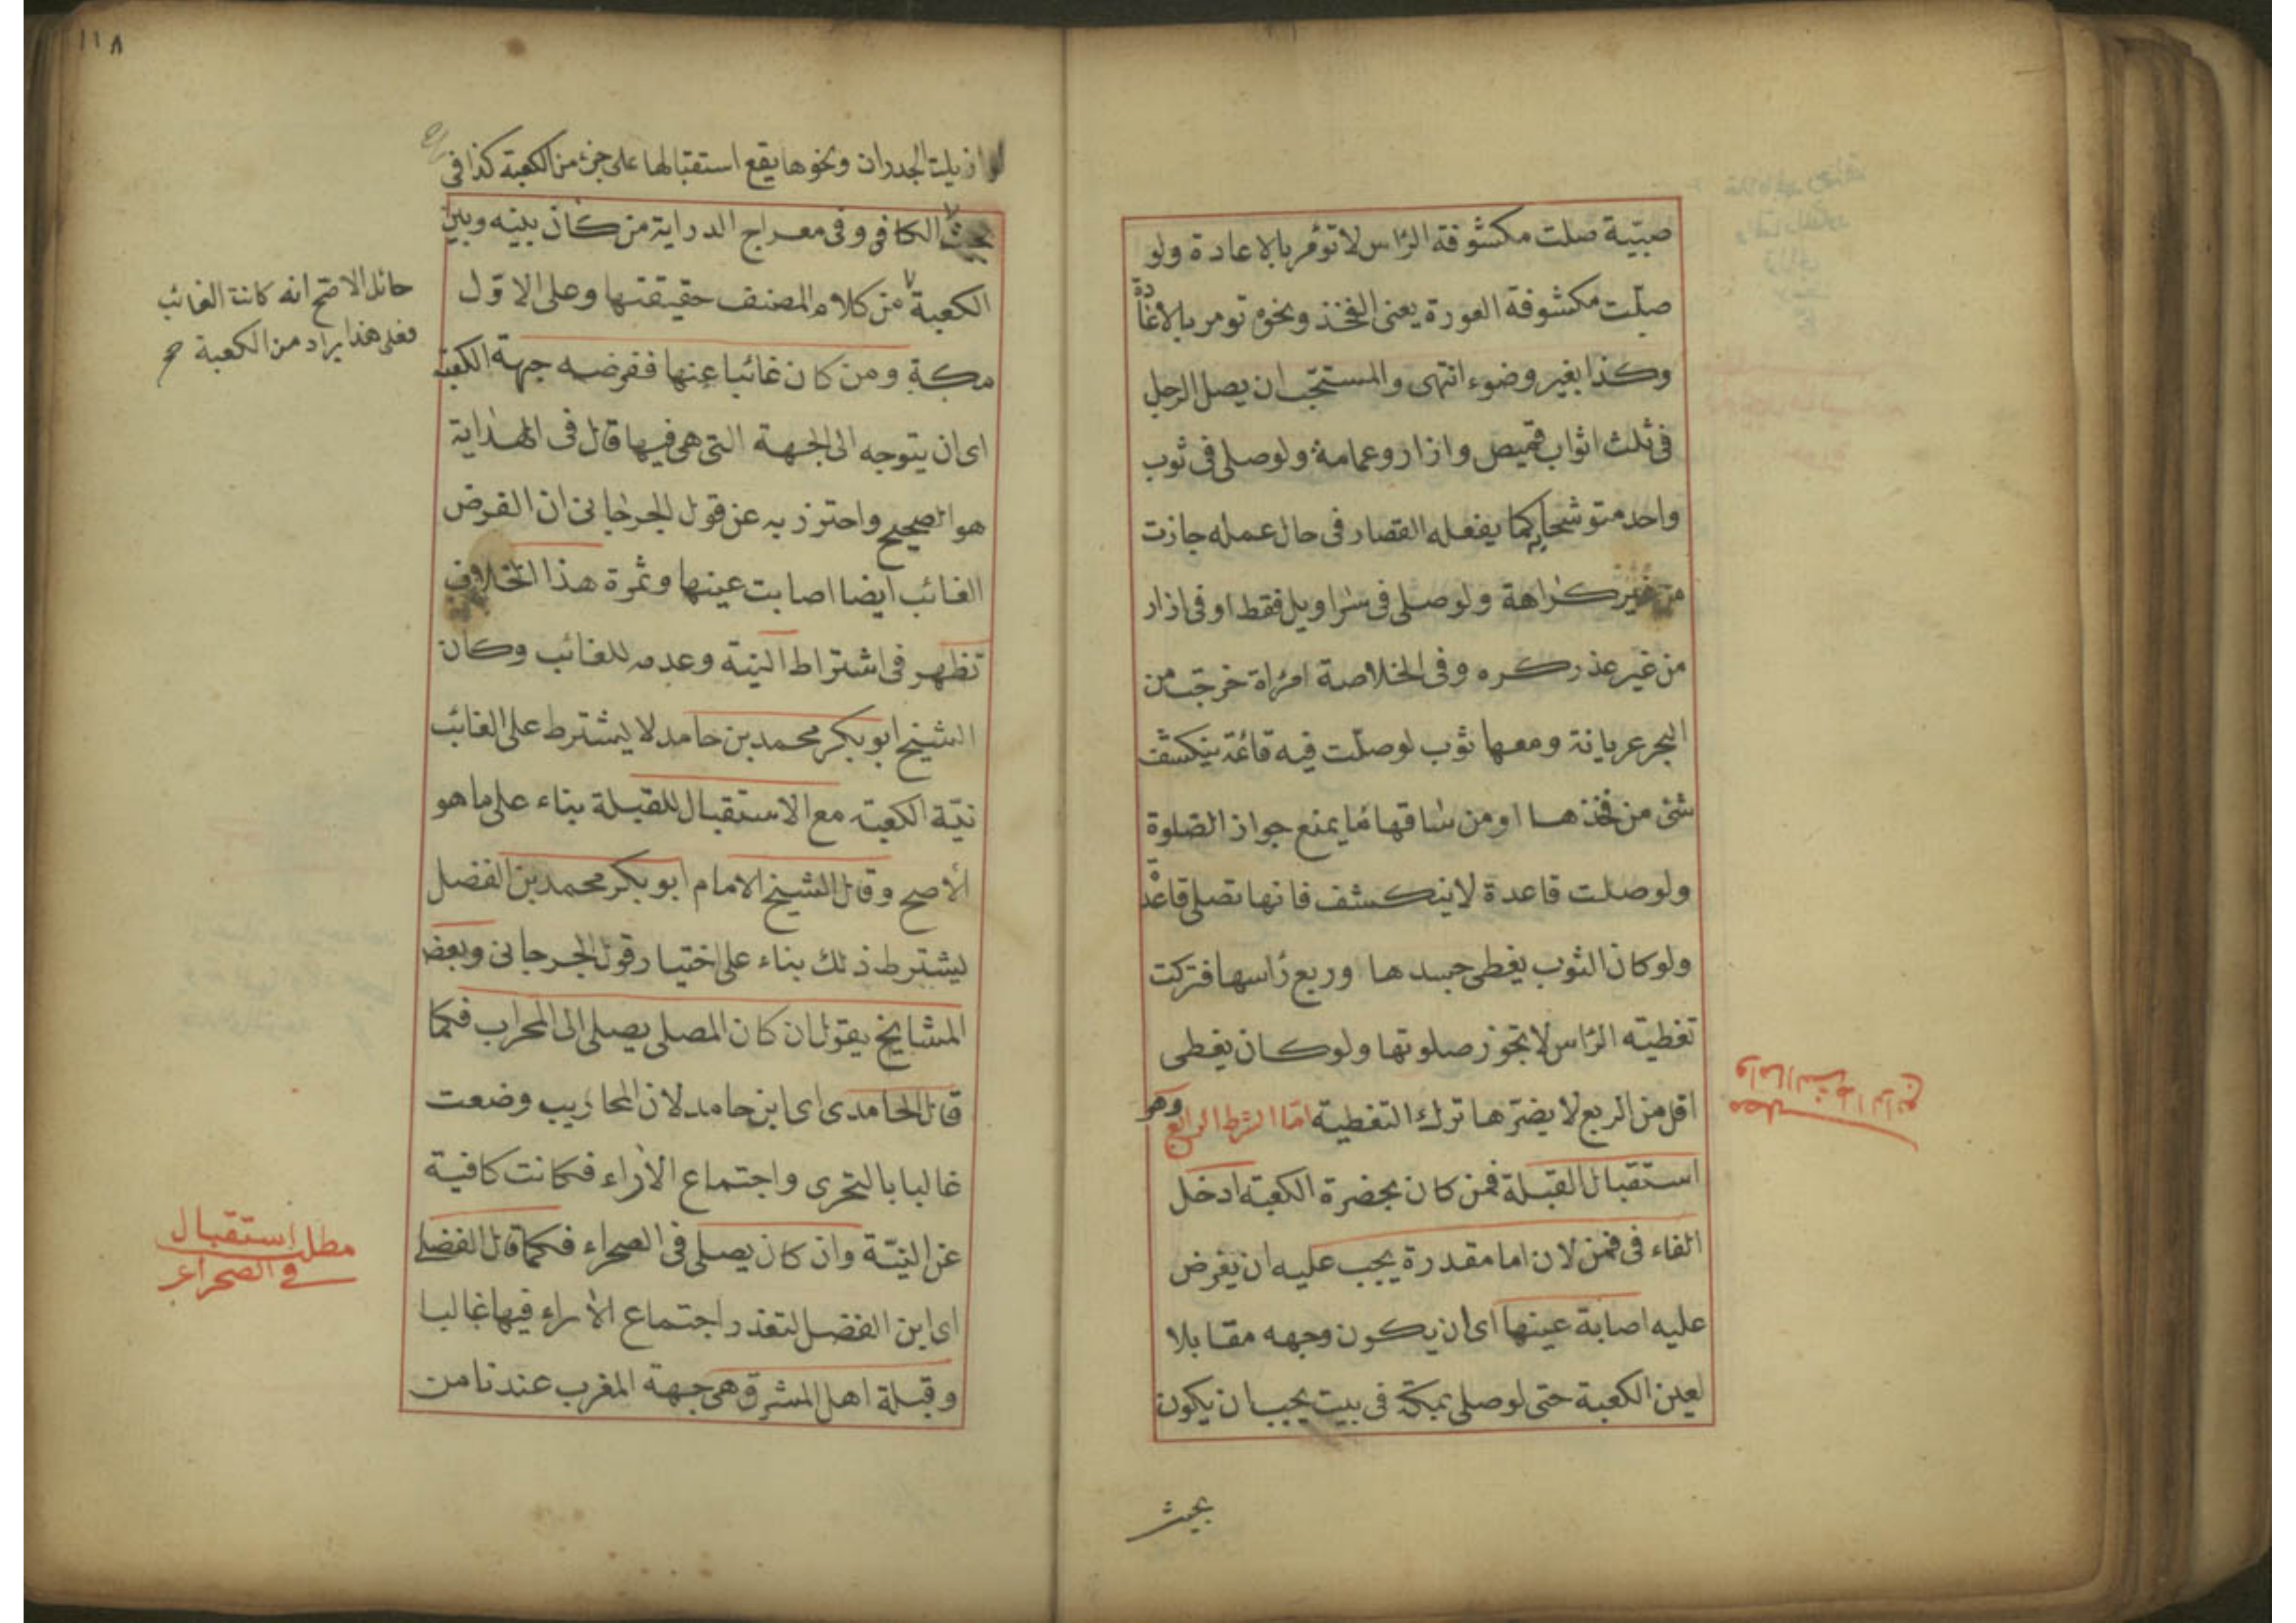 صبيّة صلت مكشوفة الرأس لا تؤمر بالاعادة ولو
صلّت مكشوفة العورة يعنى الفخذ ونحوه تومر بالاعادة
وكذا بغير وضوء انتهى والمستحّب ان يصلى الرجل
فى ثلث اثواب قميص وازار وعمامة ولو صلى فى ثوب
واحد متوشحا به كما يفعله القصار فى حال عمله جازت
من غير كراهة ولو صلى فى سراويل فقط او فى ازار
من غير عذر كره وفى الخلاصة امرأة خرجت من
البحر عريانة ومعها ثوب لو صلّت فيه قائمة ينكشف
شئ من فخذها او من ساقها مما يمنع جواز الصلوة
ولو صلت قاعدة لا ينكشف فانها تصلى قاعدة
ولو كان الثوب يغطى جسدها وربع رأسها فتركت
تغطيته الرأس لا تجوز صلوتها ولو كان يغطى
اقل من الربع لا يضرّها ترك التغطية امّا الشرط الرابع وهو
استقبال القبلة فمن كان بحضرة الكعبة ادخل
الفاء فى فمن لان اما مقدرة يجب عليه ان يفرض
عليه اصابة عينها اى ان يكون وجهه مقابلا
لعين الكعبة حتى لو صلى بمكة فى بيت يجب ان يكون
بحيث
مطلب
واما الشرط الرابع
١١٨
لو ازيلت الجدران ونحوها يقع استقبالها على جزء من الكعبة كذا فى
الكافى وفى معراج الدراية من كان بينه وبين
الكعبة من كلام المصنف حقيقتها وعلى الاوّل
مكة ومن كان غائبا عنها ففرضه جهة الكعبة
اى ان يتوجه الى الجهة التى هى فيها قال فى الهداية
هو الصحيح واحترز به عن قول الجرجانى ان الفرض
الغائب ايضا اصابت عينها وثمرة هذا الخلاف
تظهر فى اشتراط النية وعدمه للغائب وكان
الشيخ ابو بكر محمد بن حامد لا يشترط على الغائب
نيّة الكعبة مع الاستقبال للقبلة بناء على ما هو
الأصح وقال الشيخ الامام ابو بكر محمد بن الفضل
يشترط ذلك بناء على اختيار قول الجرجانى وبعض
المشايخ يقول ان كان المصلى يصلى الى المحراب فكما
قال الحامدى اى ابن حامد لان المحاريب وضعت
غالبا بالتحرى واجتماع الأراء فكانت كافية
عن النيّة وان كان يصلى فى الصحراء فكما قال الفضلى
اى ابن الفضل لتعذر اجتماع الأراء فيها غالبا
وقبلة اهل المشرق هى جهة المغرب عندنا من
حائل الاصح انه كانة الغائب
فعلى هذا يراد من الكعبة
مطلب استقبال
فى الصحراء